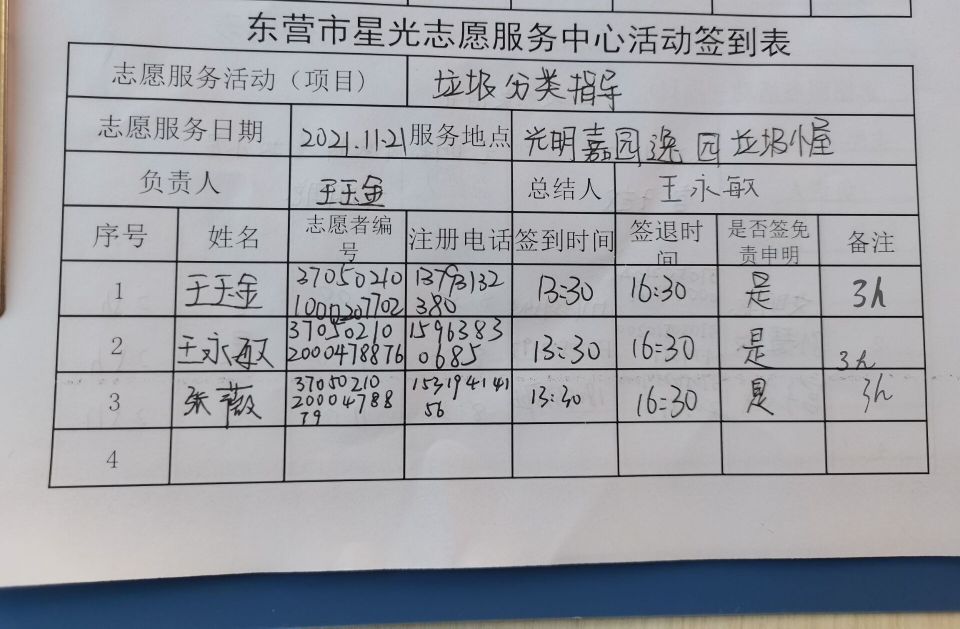 东营市星光志愿服务中心活动签到表
志愿服务活动（项目） 垃圾分类指导
志愿服务日期 2021.11.21 服务地点 光明嘉园逸园垃圾小屋
负责人 王玉金 总结人 王永敏
序号 姓名 志愿者编号 注册电话 签到时间 签退时间 是否签免责申明 备注
1 王玉金 37050210 13793132 13:30 16:30 是 3h
380
2 王永敏 37050210 15963830685 13:30 16:30 是 3h
2000478876
3 朱薇 37050210 153194141 13:30 16:30 是 3h
20004788 56
79
4